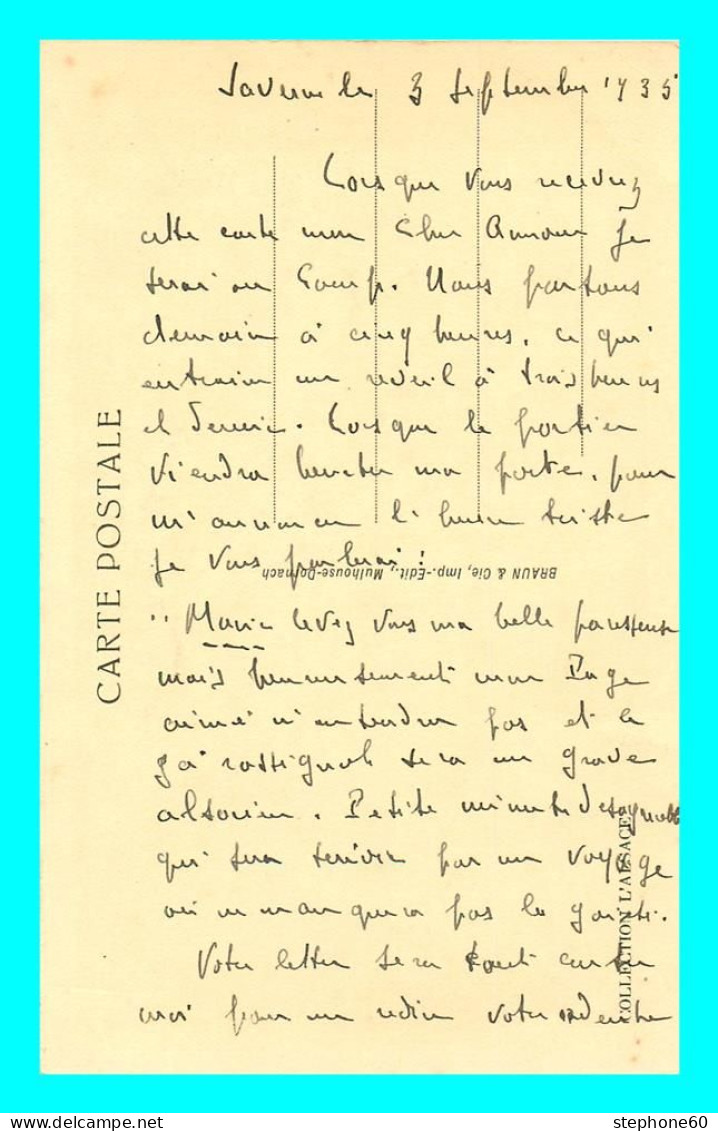 Saverne le 3 Septembre 1935
Lorsque Vous recevrez
cette carte mon Cher Amour je
serai au Camp. Nous partons
demain à cinq heures, ce qui
entraine un reveil à trois heures
et demie. Lorsque le portier
viendra heurter ma porte, pour
m'annoncer l'heure triste
je Vous parlerai :
BRAUN & Cie, Imp.-Edit., Mulhouse-Dornach
"Marie levez Vous ma belle paresseuse
mais heureusement mon Page
aimé n'entendra pas et le
gai rossignol sera un grave
alsacien. Petite minute desagreable
qui sera suivie par un voyage
où ne manquera pas la gaieté.
Votre lettre sera tout contre
moi pour me redire votre ardente
CARTE POSTALE
COLLECTION L'ALSACE
stephone60